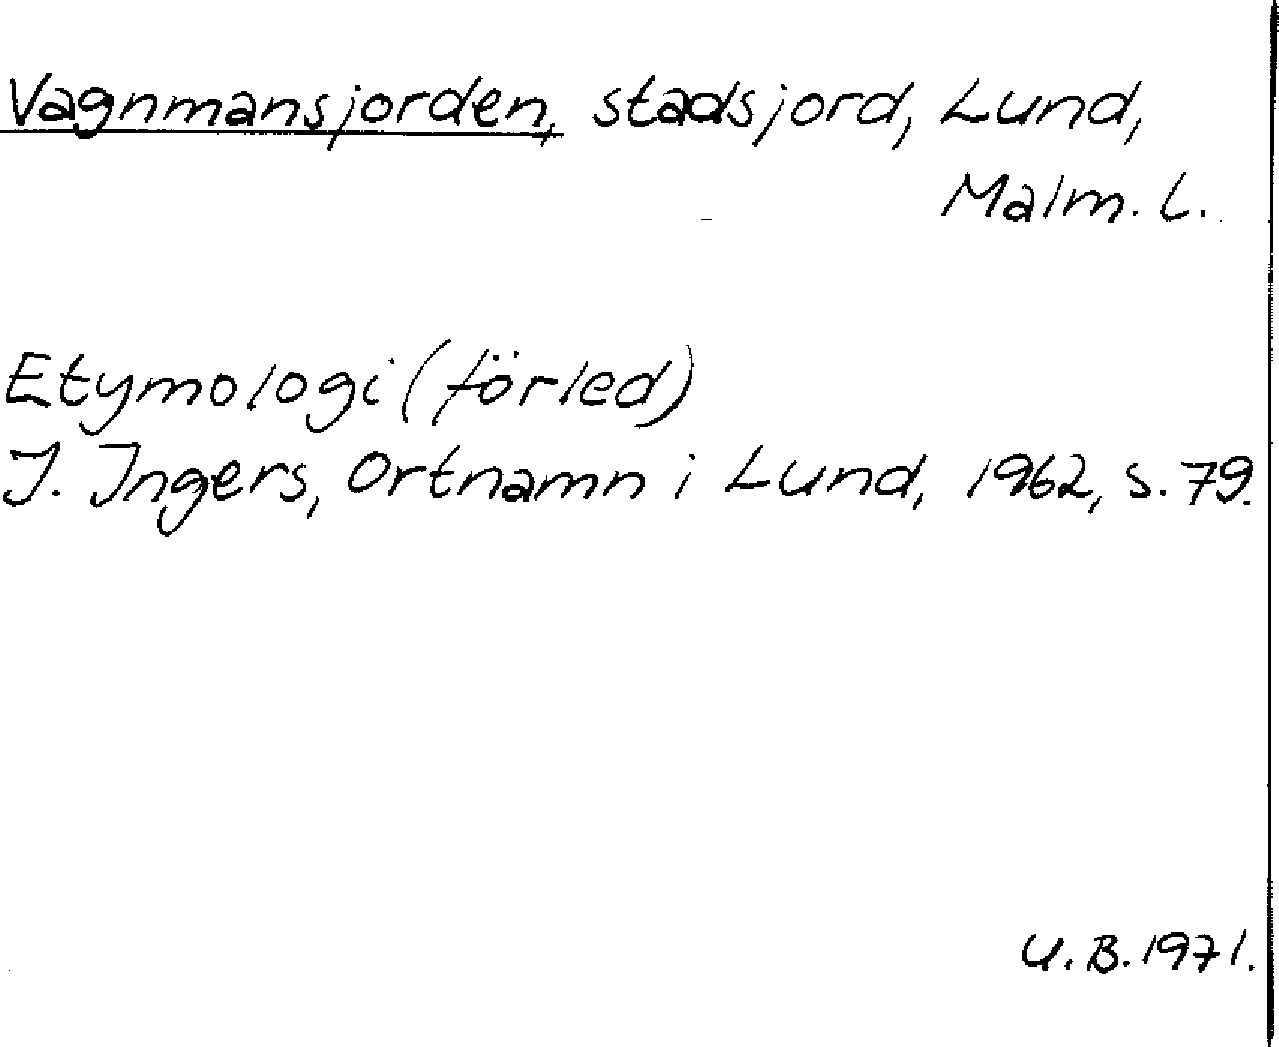 Vagnmansjorden, stadsjord, Lund,
Malm. l.
Etymologi (förled)
I. Ingers, Ortnamn i Lund, 1962, s. 79.
U. B. 1971.